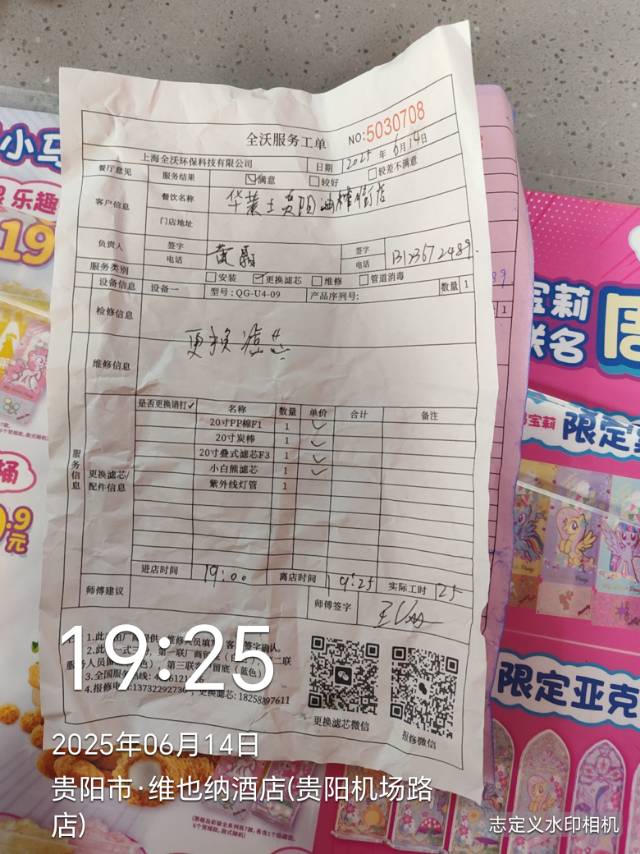 全沃服务工单
NO:5030708
上海全沃环保科技有限公司
日期 2025年6月14日
餐厅意见 服务结果 ☑满意 □较好 □较差不满意
客户信息 餐饮名称 华莱士贵阳油榨街店
门店地址
负责人 签字 签字
电话 电话
服务类别 □安装 ☑更换滤芯 □维修 □管道消毒
设备信息 设备一 型号:QG-U4-09 产品序列号: 数量 1
检修信息
维修信息 更换滤芯
服务信息
更换滤芯/配件信息
是否更换请打✓ 名称 数量 单价 合计 备注
20寸PP棉F1 1 ✓
20寸炭棒 1 ✓
20寸叠式滤芯F3 1 ✓
小白熊滤芯 1 ✓
紫外线灯管 1
进店时间 19:00 离店时间 19:25 实际工时 25
师傅建议 师傅签字
19:25
更换滤芯:18258897611
更换滤芯微信
报修微信
2025年06月14日
贵阳市·维也纳酒店(贵阳机场路
店)
志定义水印相机
小马
乐趣
19
桶
.9
元
宝莉
联名
宝莉
限定
限定亚克